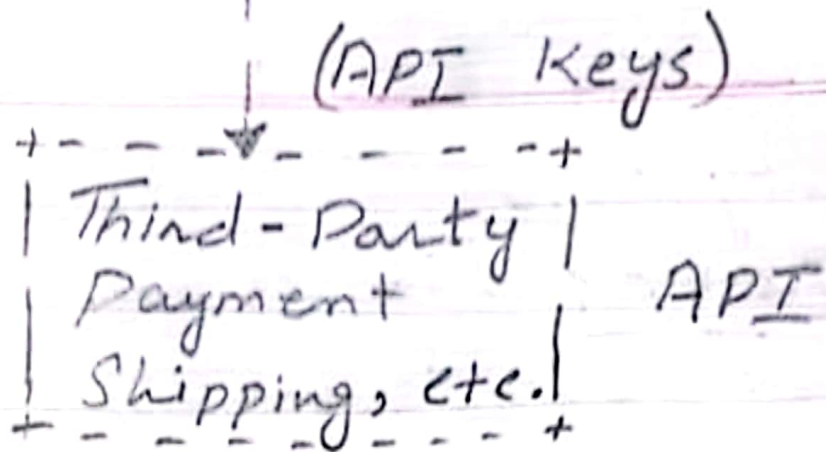 (API Keys)
Third-Party
Payment API
Shipping, etc.